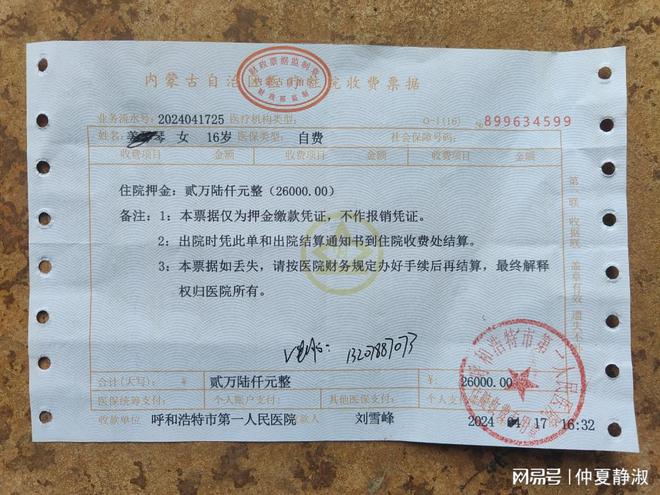 财政票据监制章
内蒙古自治区医疗住院收费票据
业务流水号: 2024041725 医疗机构类型: 0-1(16) № 899634599
姓名: 琴 女 16岁 医保类型: 自费 社会保障号码:
收费项目 金额 收费项目 金额 收费项目 金额
住院押金: 贰万陆仟元整 (26000.00)
备注: 1: 本票据仅为押金缴款凭证,不作报销凭证。
2: 出院时凭此单和出院结算通知书到住院收费处结算。
3: 本票据如丢失, 请按医院财务规定办好手续后再结算, 最终解释
权归医院所有。
第一联 收据联 盖章有效 遗失不
呼和浩特市第一人民医院
合计(大写): ¥ 贰万陆仟元整 ¥: 26000.00
医保统筹支付: 个人账户支付: 其他医保支付: 个人支付
收款单位 呼和浩特市第一人民医院 款人 刘雪峰 2024 04 17 16:32
网易号 | 仲夏静淑